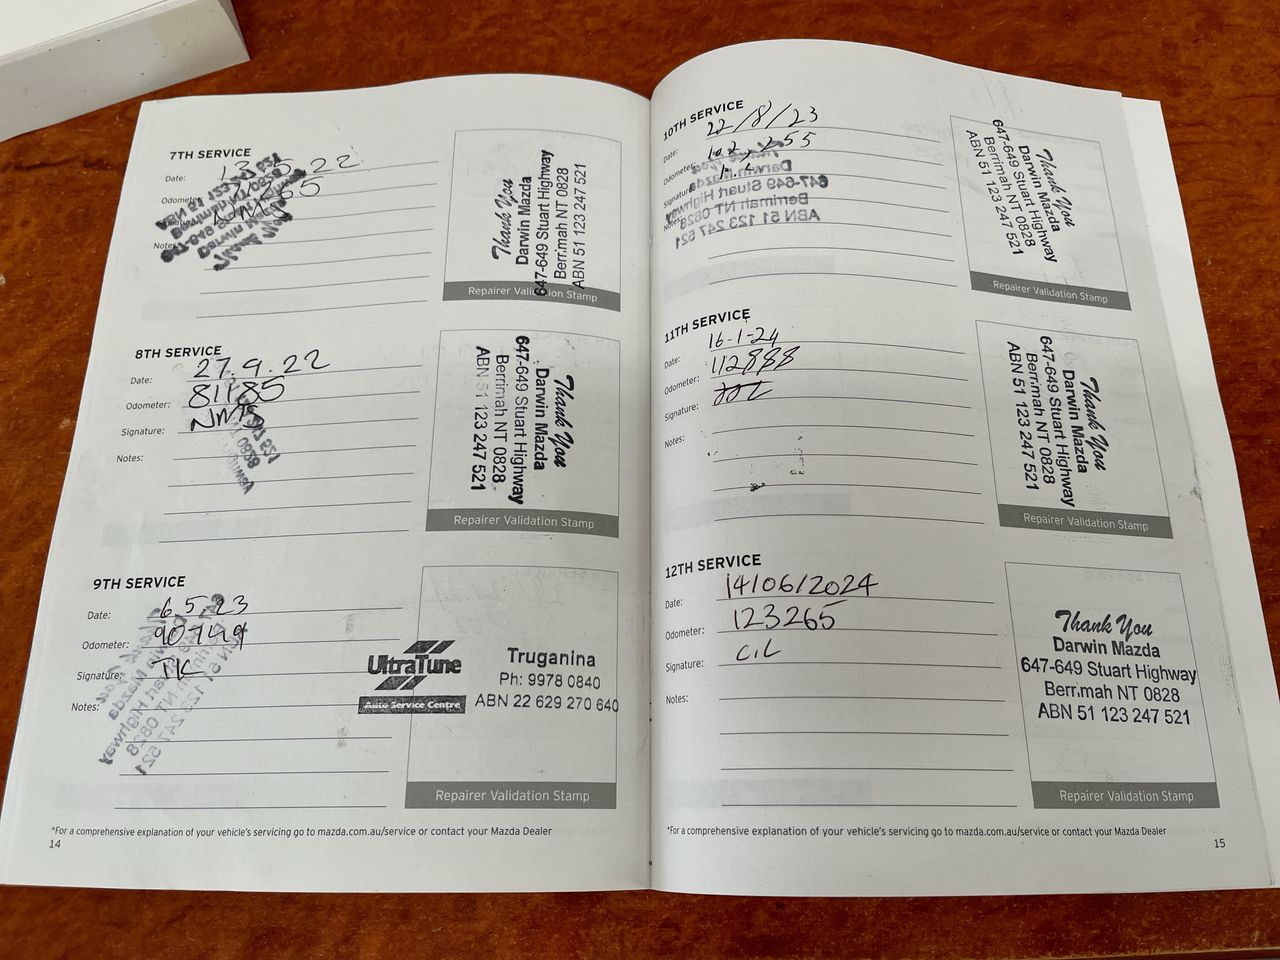 7TH SERVICE
Date:
Odometer:
Notes:
Thank You
Darwin Mazda
647-649 Stuart Highway
Berrimah NT 0828
ABN 51 123 247 521
Repairer Validation Stamp
8TH SERVICE
Date: 27.9.22
Odometer: 81185
Signature: NMS
Notes:
Thank You
Darwin Mazda
647-649 Stuart Highway
Berrimah NT 0828
ABN 51 123 247 521
Repairer Validation Stamp
9TH SERVICE
Date: 6.5.23
Odometer: 90749
Signature: TK
Notes:
UltraTune
Auto Service Centre
Truganina
Ph: 9978 0840
ABN 22 629 270 640
Repairer Validation Stamp
*For a comprehensive explanation of your vehicle's servicing go to mazda.com.au/service or contact your Mazda Dealer
14
10TH SERVICE
Date: 22/8/23
Odometer:
Signature:
Notes:
Darwin Mazda
647-649 Stuart Highway
Berrimah NT 0828
ABN 51 123 247 521
Thank You
Darwin Mazda
647-649 Stuart Highway
Berrimah NT 0828
ABN 51 123 247 521
Repairer Validation Stamp
11TH SERVICE
Date: 16-1-24
Odometer: 112888
Signature:
Notes:
Thank You
Darwin Mazda
647-649 Stuart Highway
Berrimah NT 0828
ABN 51 123 247 521
Repairer Validation Stamp
12TH SERVICE
Date: 14/06/2024
Odometer: 123265
Signature: C.L
Notes:
Thank You
Darwin Mazda
647-649 Stuart Highway
Berrimah NT 0828
ABN 51 123 247 521
Repairer Validation Stamp
*For a comprehensive explanation of your vehicle's servicing go to mazda.com.au/service or contact your Mazda Dealer
15